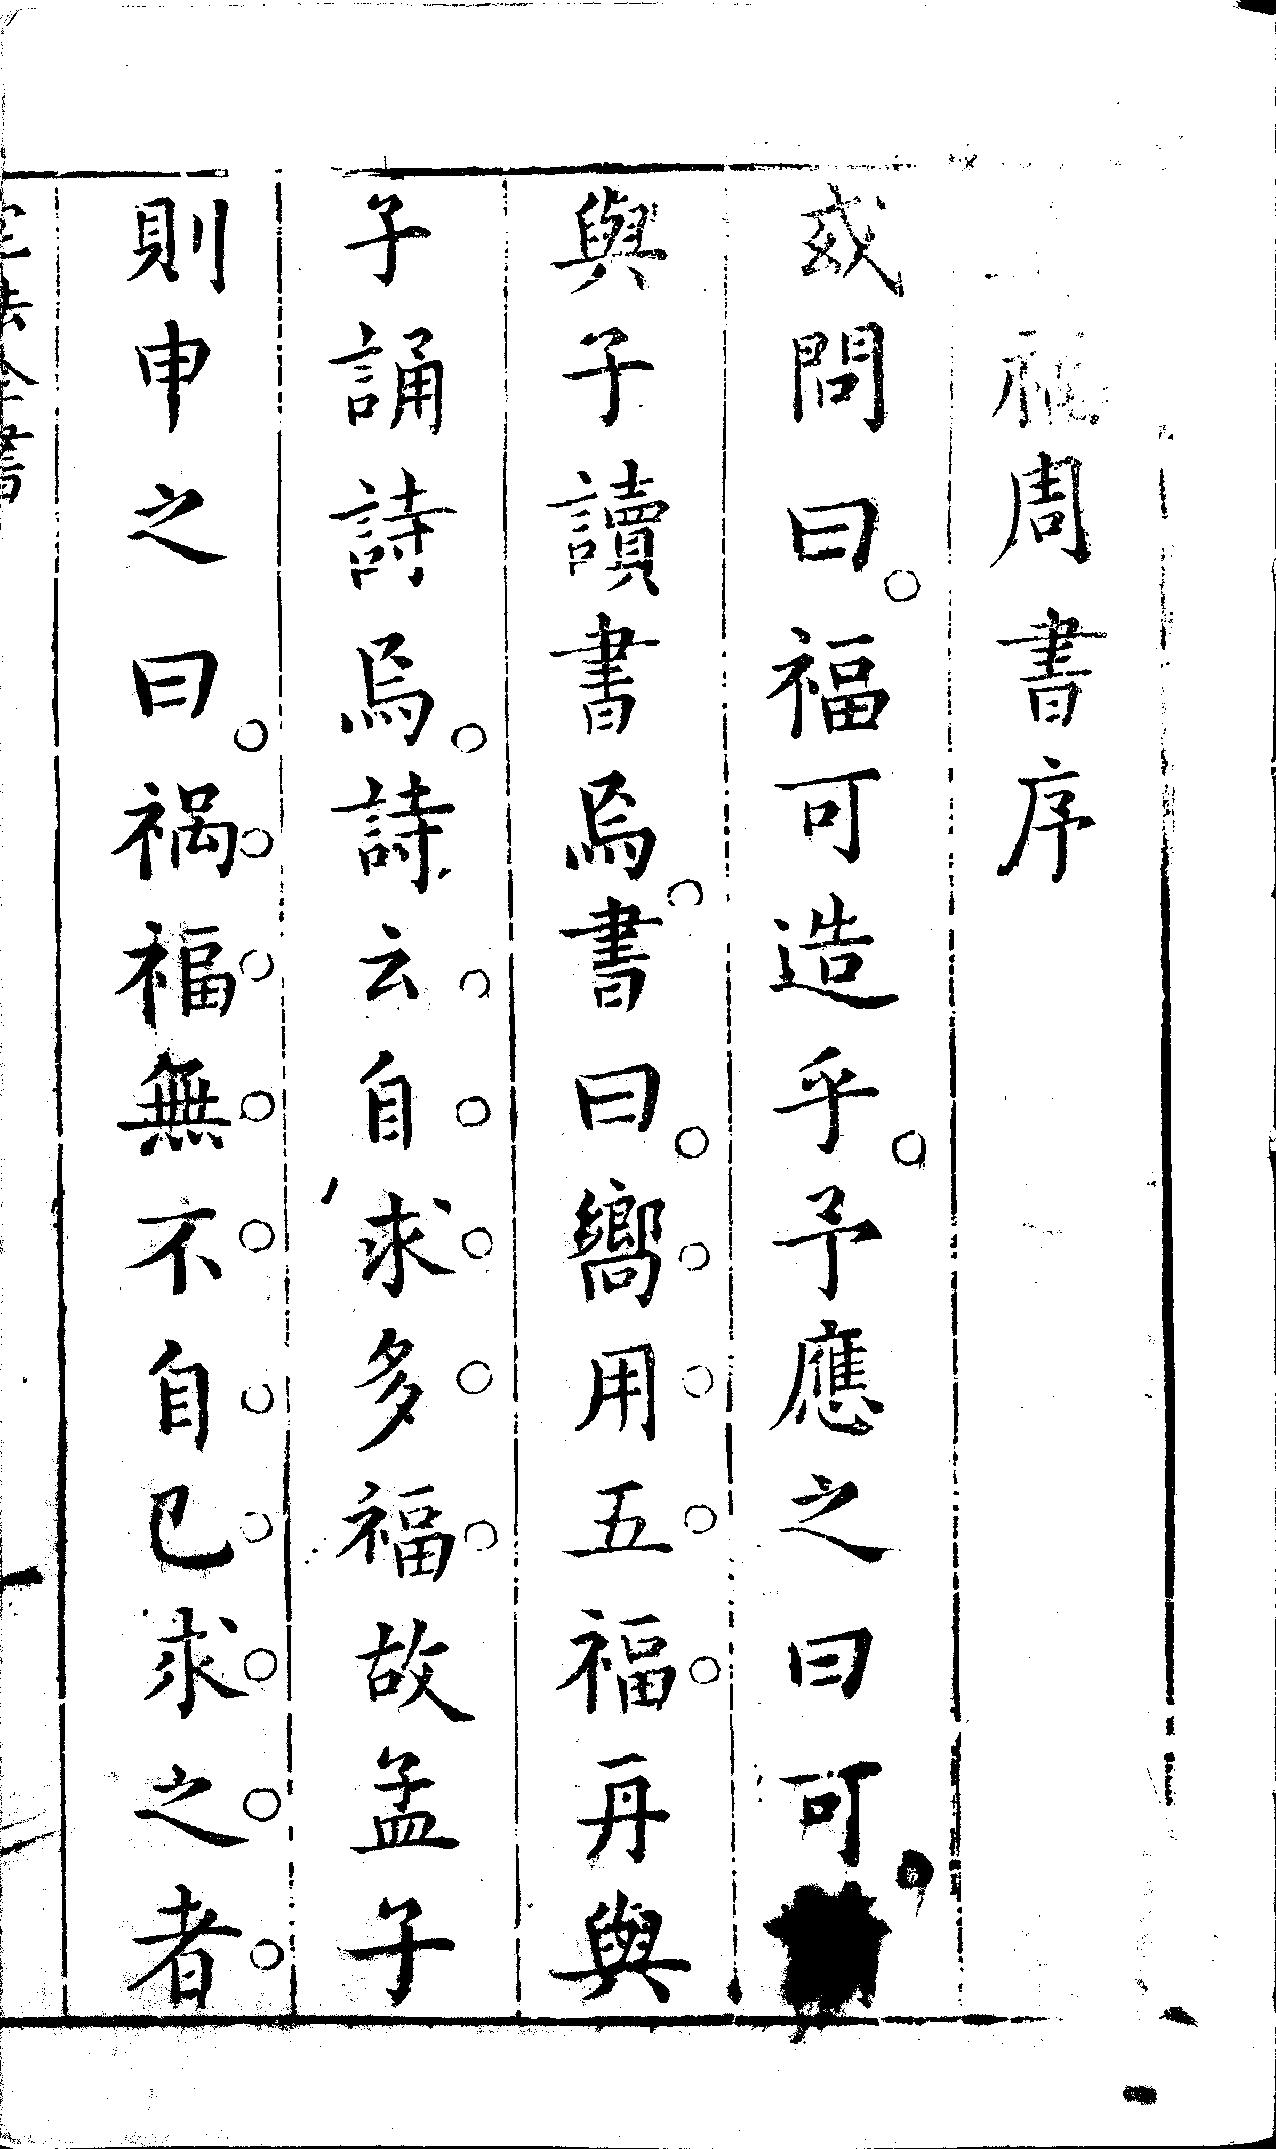 周書序
或問曰福可造乎予應之曰可
與子讀書焉書曰嚮用五福再與
子誦詩焉詩云自求多福故孟子
則申之曰禍福無不自已求之者
全書